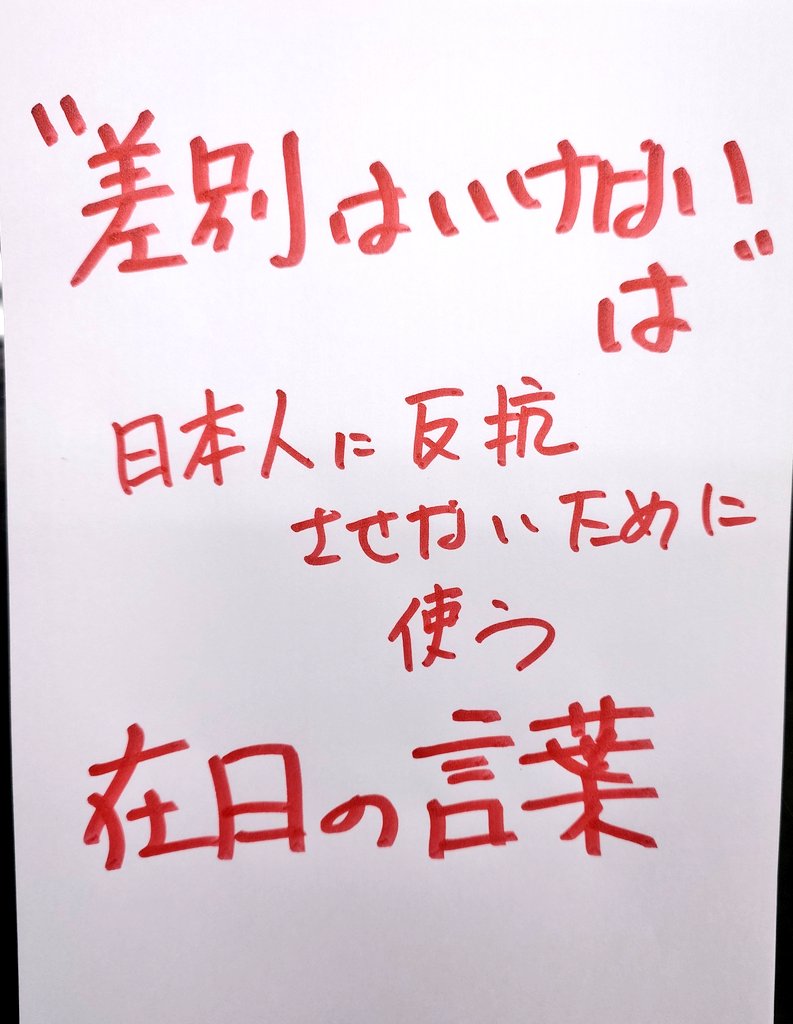 "差別はいけない!"
は
日本人に反抗
させないために
使う
在日の言葉